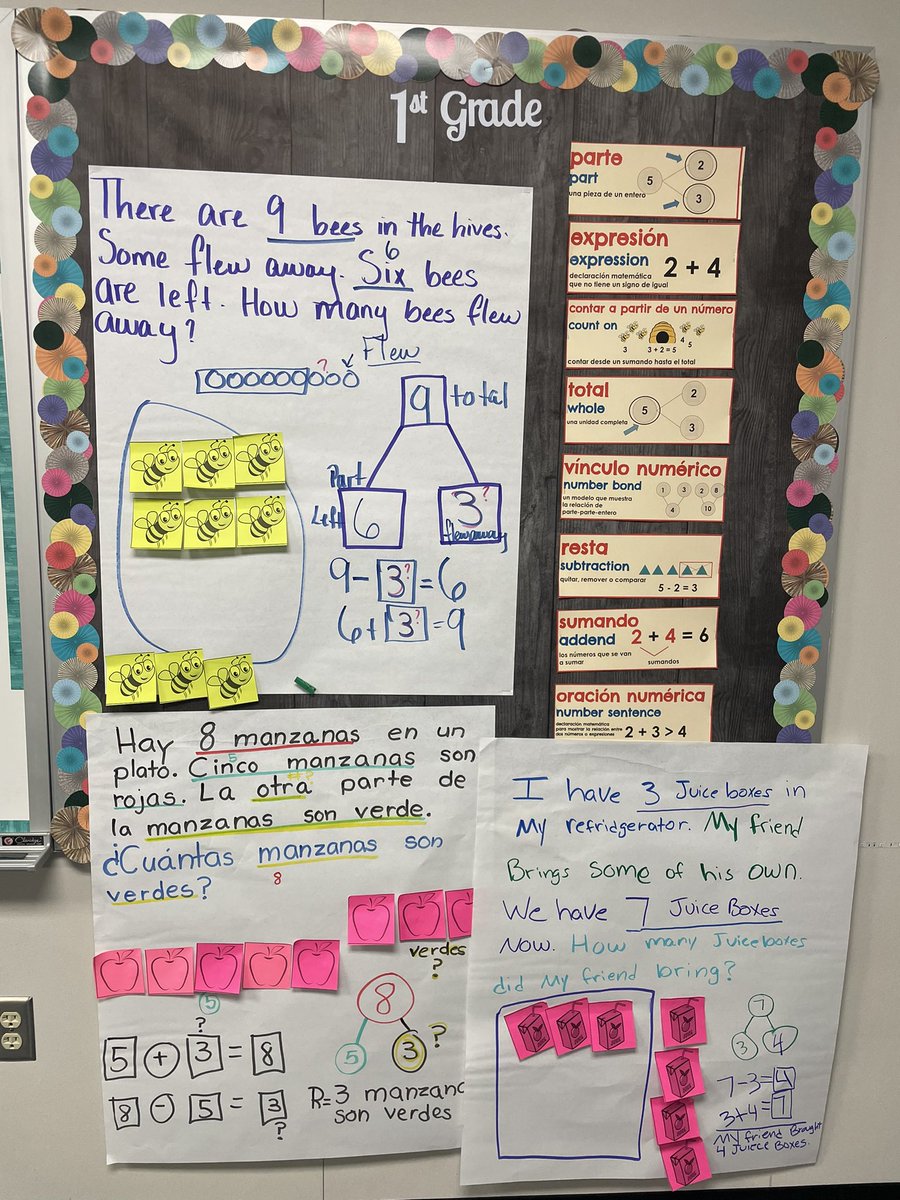 1st Grade
There are 9 bees in the hives.
Some flew away. Six bees
6
are left. How many bees flew
away?
Flew
?
9 total
Part
Left 6
3?
flew away
9-3?=6
6+3?=9
parte
part
una pieza de un entero
5
2
3
expresión
expression
declaración matemática
que no tiene un signo de igual
2 + 4
contar a partir de un número
count on
3
3 + 2 = 5
4
5
contar desde un sumando hasta el total
total
whole
una unidad completa
5
2
3
vínculo numérico
number bond
un modelo que muestra
la relación de
parte-parte-entero
1 3 2 8
4 10
resta
subtraction
quitar, remover o comparar
5 - 2 = 3
sumando
addend
los números que se van
a sumar
2 + 4 = 6
sumandos
oración numérica
number sentence
declaración matemática
para mostrar la relación entre
dos números o expresiones
2 + 3 > 4
Hay 8 manzanas en un
plato. Cinco manzanas son
5
rojas. La otra parte de
la manzanas son verde.
¿Cuántas manzanas son
verdes?
8
verdes
?
5
?
8
5
3 ?
5 + 3 = 8
8 - 5 = 3
?
R=3 manzana
son verdes
I have 3 Juice boxes in
My refridgerator. My friend
Brings some of his own.
We have 7 Juice Boxes
Now. How many Juiceboxes
did My friend bring?
7
3 4
7-3=4
3+4=7
My friend Brought
4 Juiece Boxes.